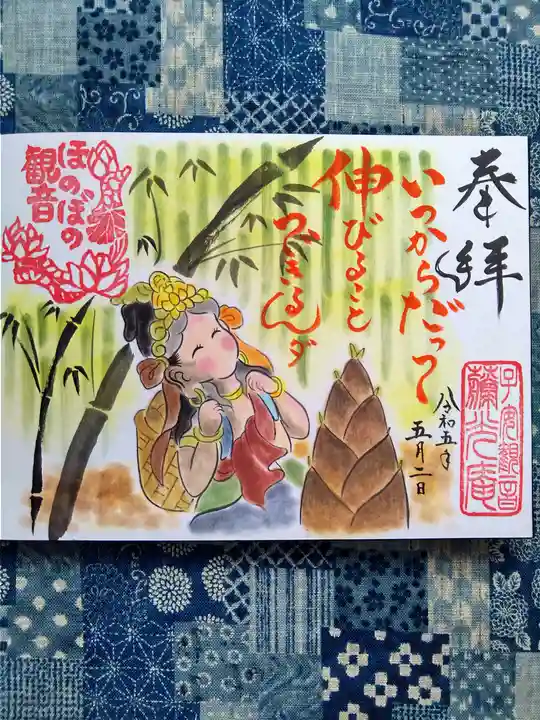 奉拝
いつからだって
伸びること
できるんダ
令和五年
五月二日
子安観音
藤光庵
ほのぼの
観音